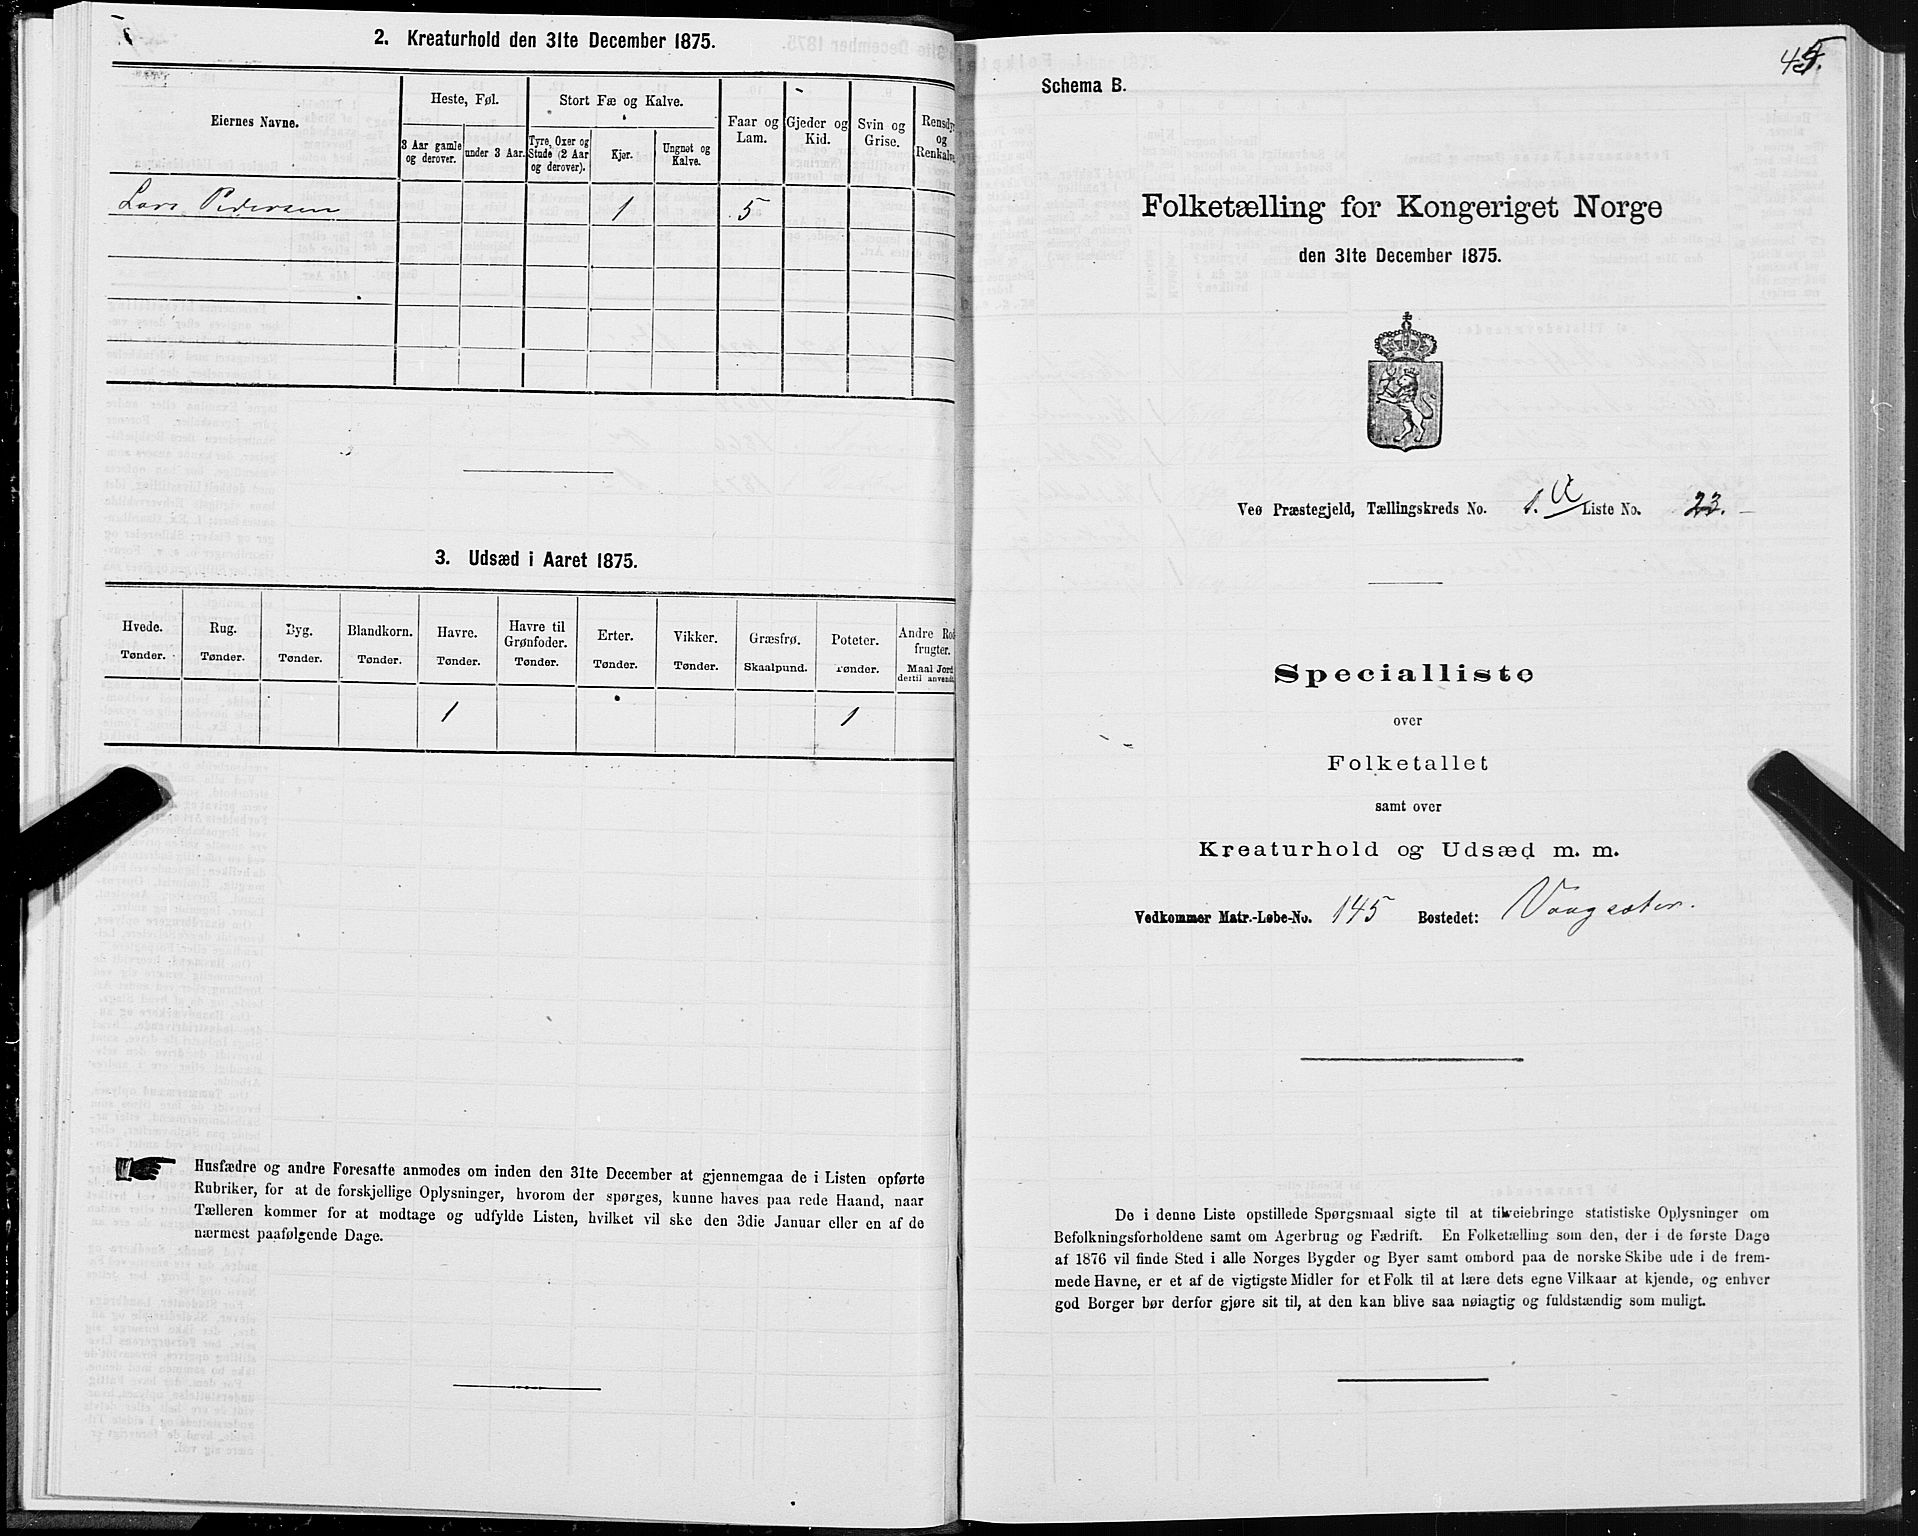 2. Kreaturhold den 31te December 1875.
Eiernes Navne.
Heste, Føl.
Stort Fæ og Kalve.
Faar og Lam.
Gjeder og Kid.
Svin og Grise.
Rensdyr og Renkalve
3 Aar gamle og derover.
under 3 Aar.
Tyre, Oxer og Stude (2 Aar og derover).
Kjør.
Ungnøt og Kalve.
Lars Pedersen 1 5
3. Udsæd i Aaret 1875.
Hvede. Rug. Byg. Blandkorn. Havre. Havre til Grønfoder. Erter. Vikker. Græsfrø. Poteter. Andre Rodfrugter.
Tønder. Tønder. Tønder. Tønder. Tønder. Tønder. Tønder. Tønder. Skaalpund. Tønder. Maal Jord dertil anvendt.
1 1
Husfædre og andre Foresatte anmodes om inden den 31te December at gjennemgaa de i Listen opførte
Rubriker, for at de forskjellige Oplysninger, hvorom der spørges, kunne haves paa rede Haand, naar
Tælleren kommer for at modtage og udfylde Listen, hvilket vil ske den 3die Januar eller en af de
nærmest paafølgende Dage.
45.
Schema B.
Folketælling for Kongeriget Norge
den 31te December 1875.
Veø Præstegjeld, Tællingskreds No. 1. a Liste No. 23.
Specialliste
over
Folketallet
samt over
Kreaturhold og Udsæd m. m.
Vedkommer Matr.-Løbe-No. 145 Bostedet: Vaagsæter.
De i denne Liste opstillede Spørgsmaal sigte til at tilveiebringe statistiske Oplysninger om
Befolkningsforholdene samt om Agerbrug og Fædrift. En Folketælling som den, der i de første Dage
af 1876 vil finde Sted i alle Norges Bygder og Byer samt ombord paa de norske Skibe ude i de frem-
mede Havne, er et af de vigtigste Midler for et Folk til at lære dets egne Vilkaar at kjende, og enhver
god Borger bør derfor gjøre sit til, at den kan blive saa nøiagtig og fuldstændig som muligt.